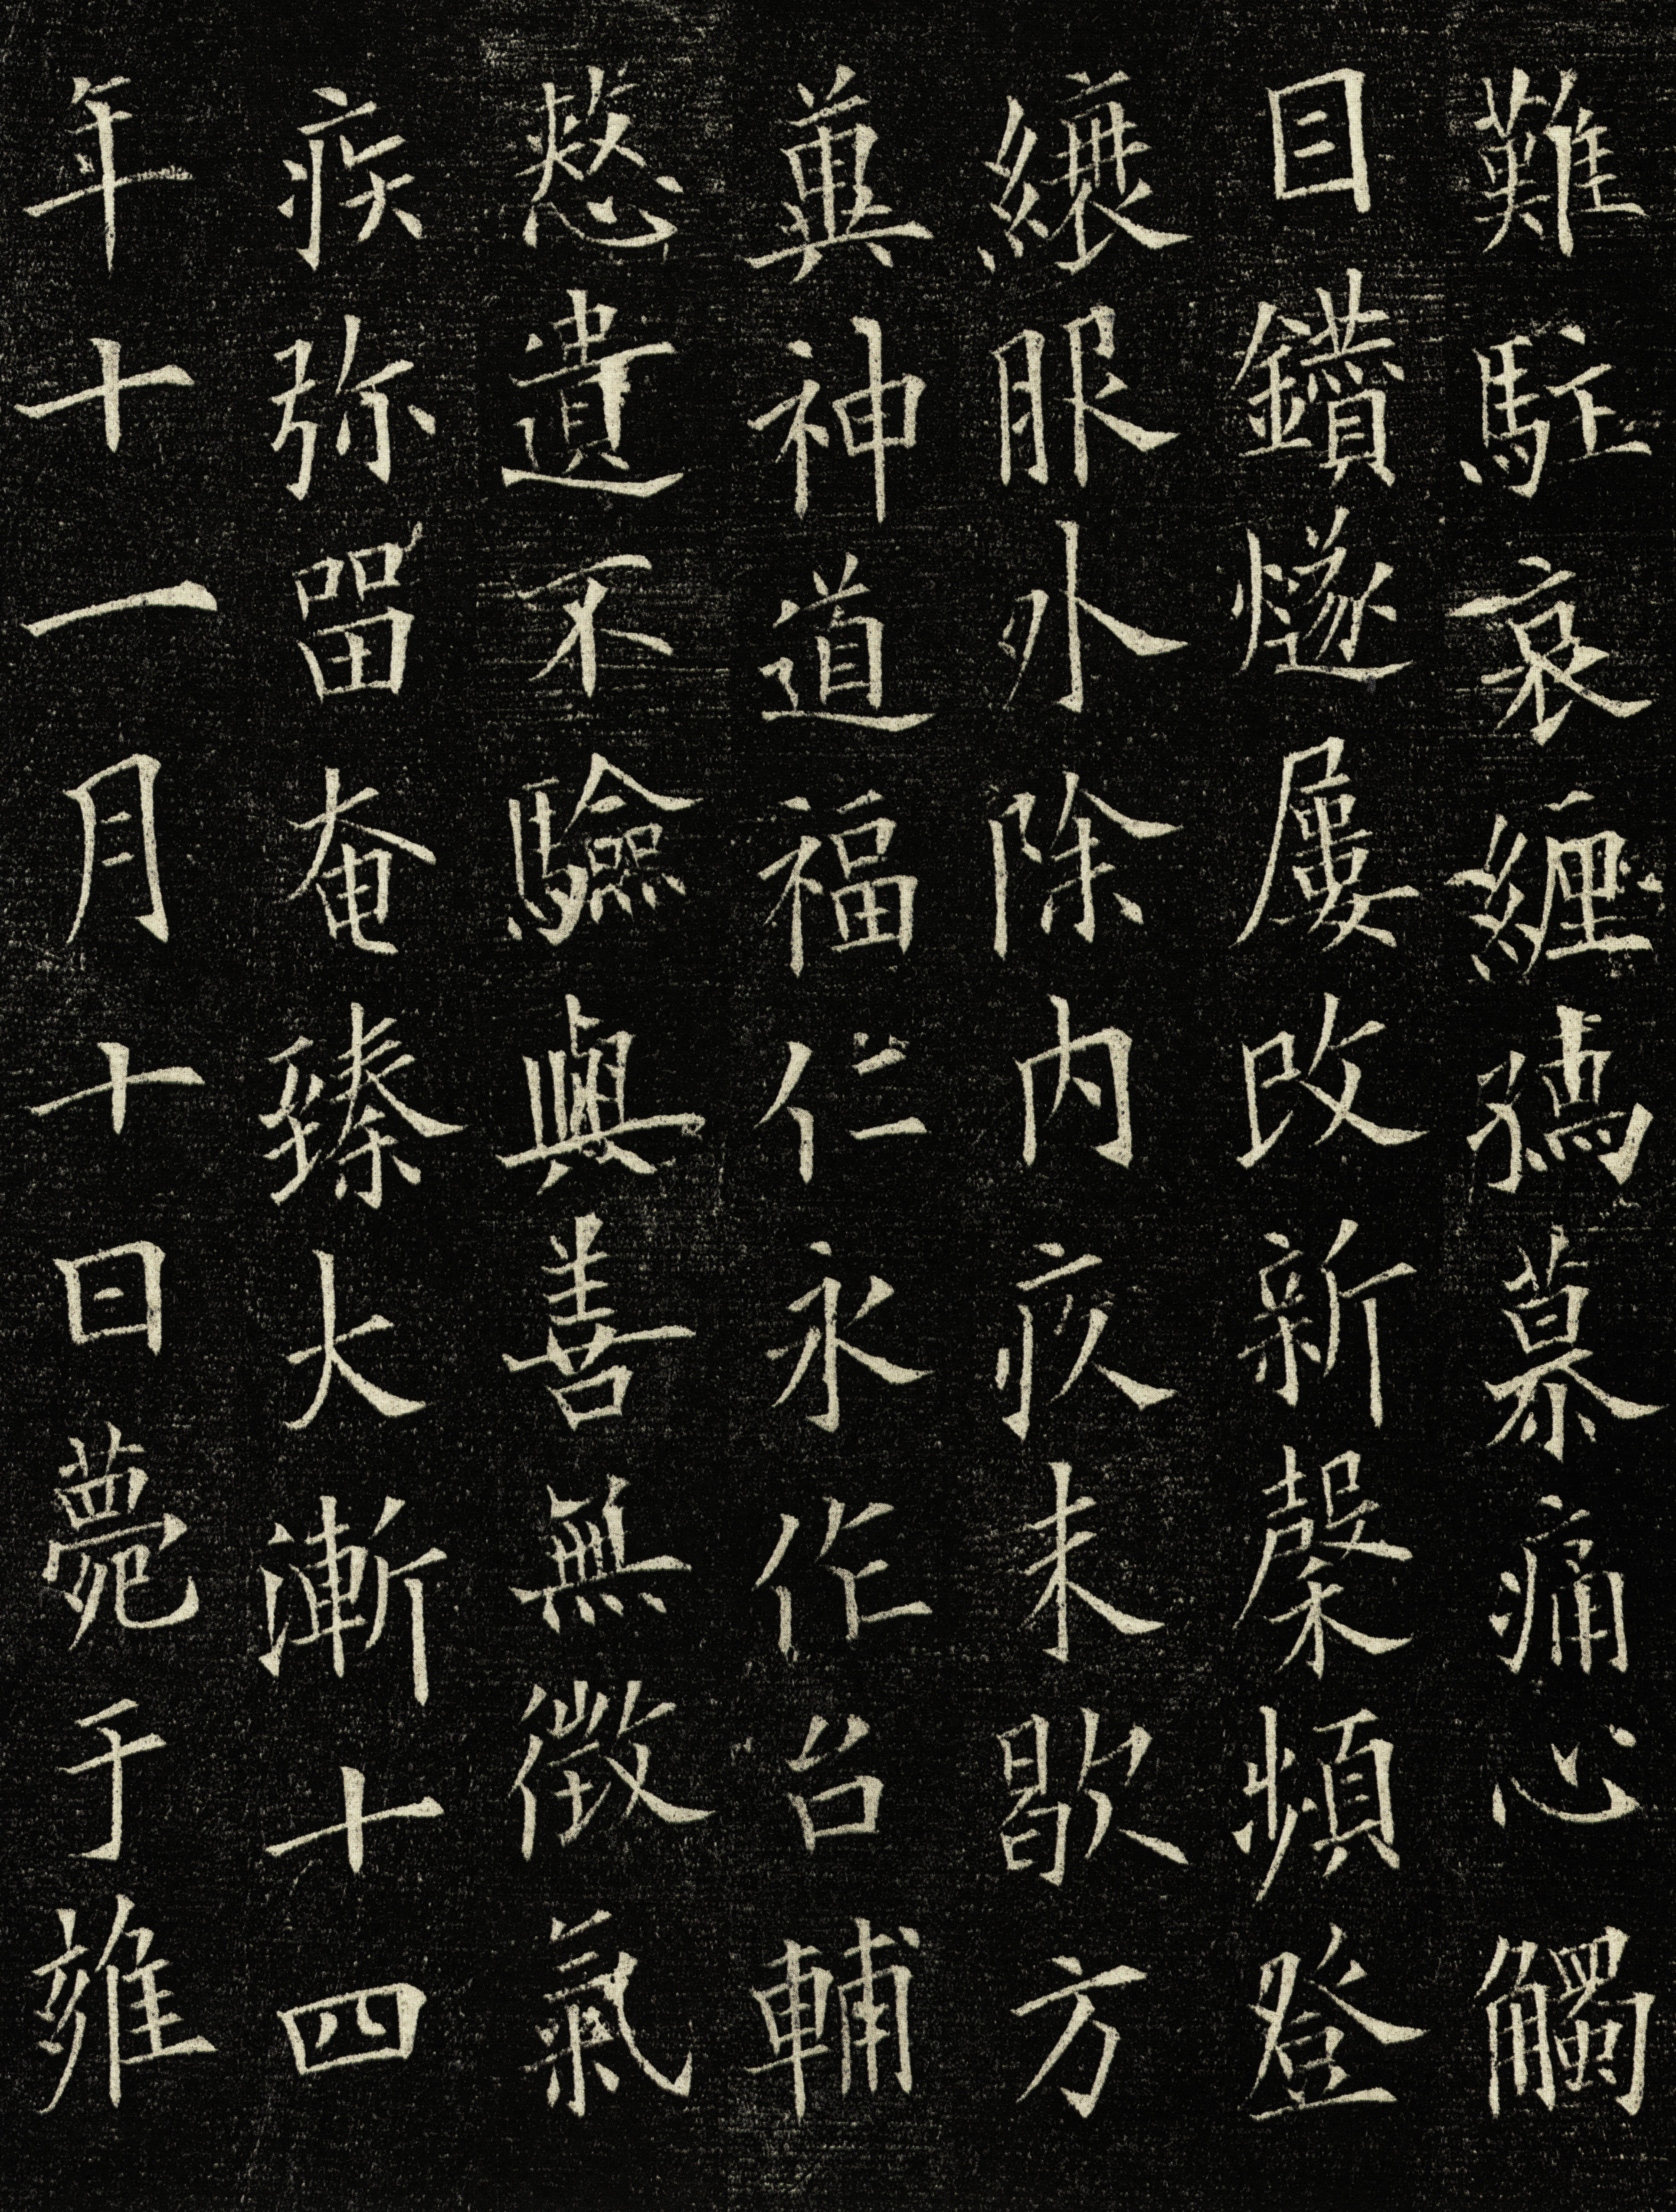 難駐哀纏孺慕痛心觸
目鑽燧屢改新穀頻登
縗服外除内疚未歇方
冀神道福仁永作台輔
憖遺不驗與善無徵氣
疾弥留奄臻大漸十四
年十一月十日薨于雍